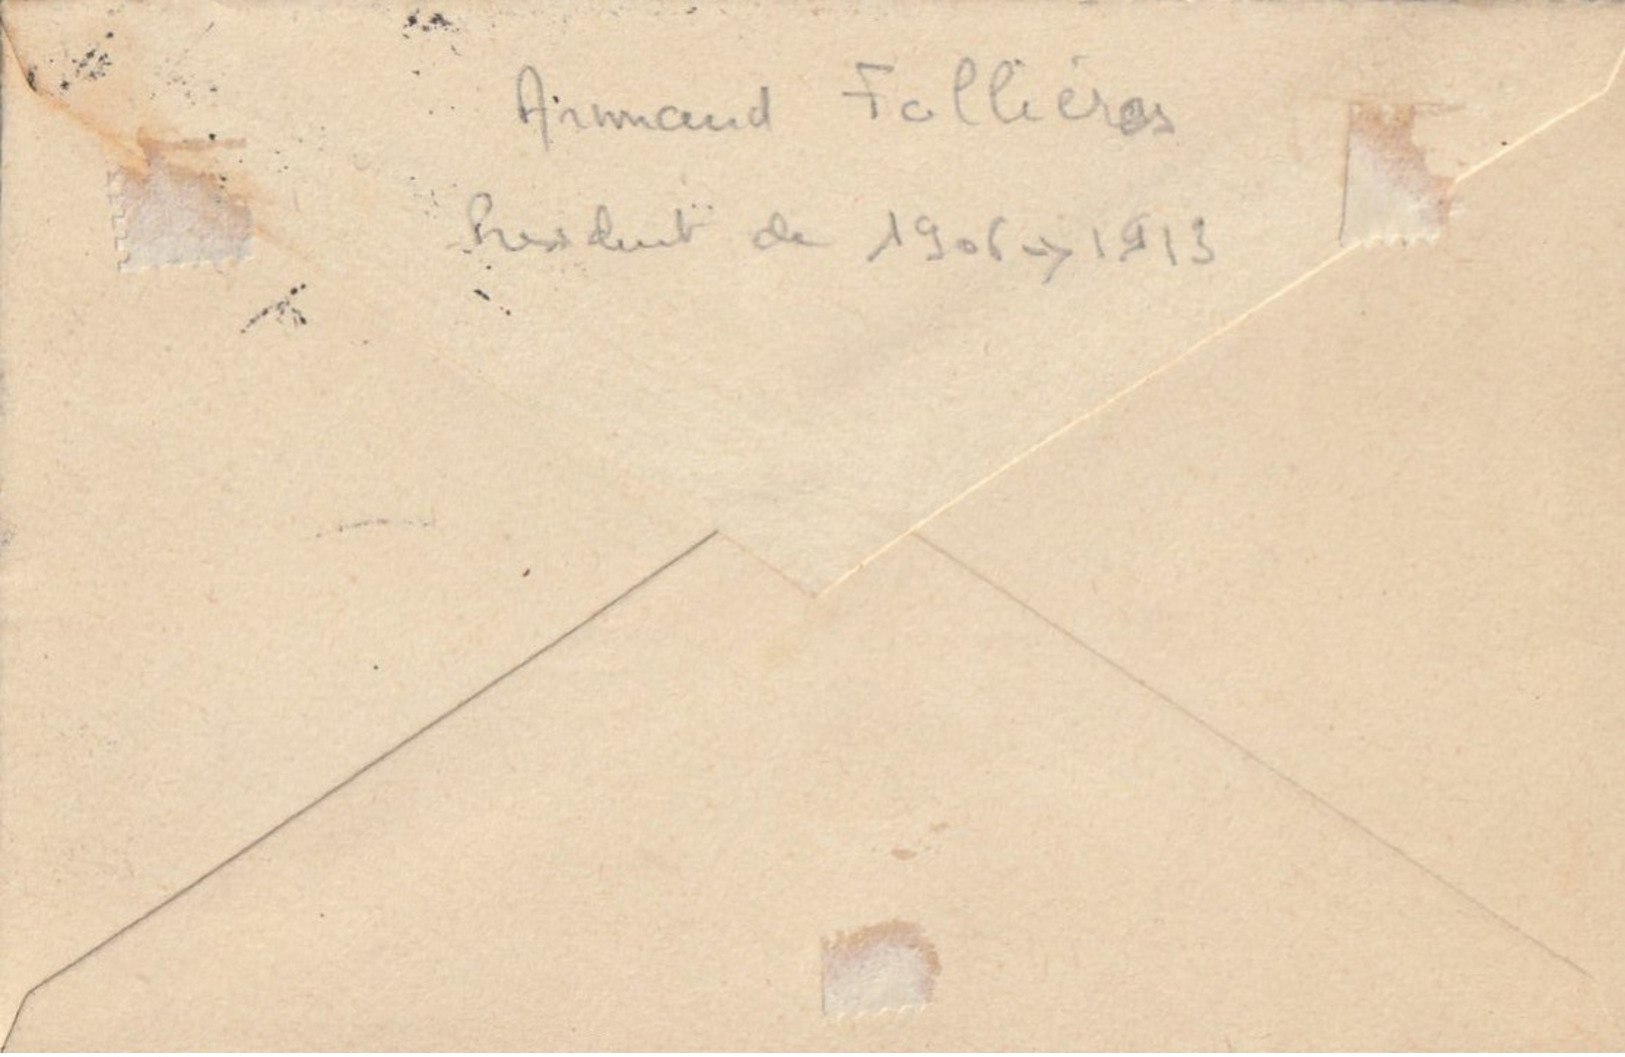 Armand Fallières
President de 1906 → 1913